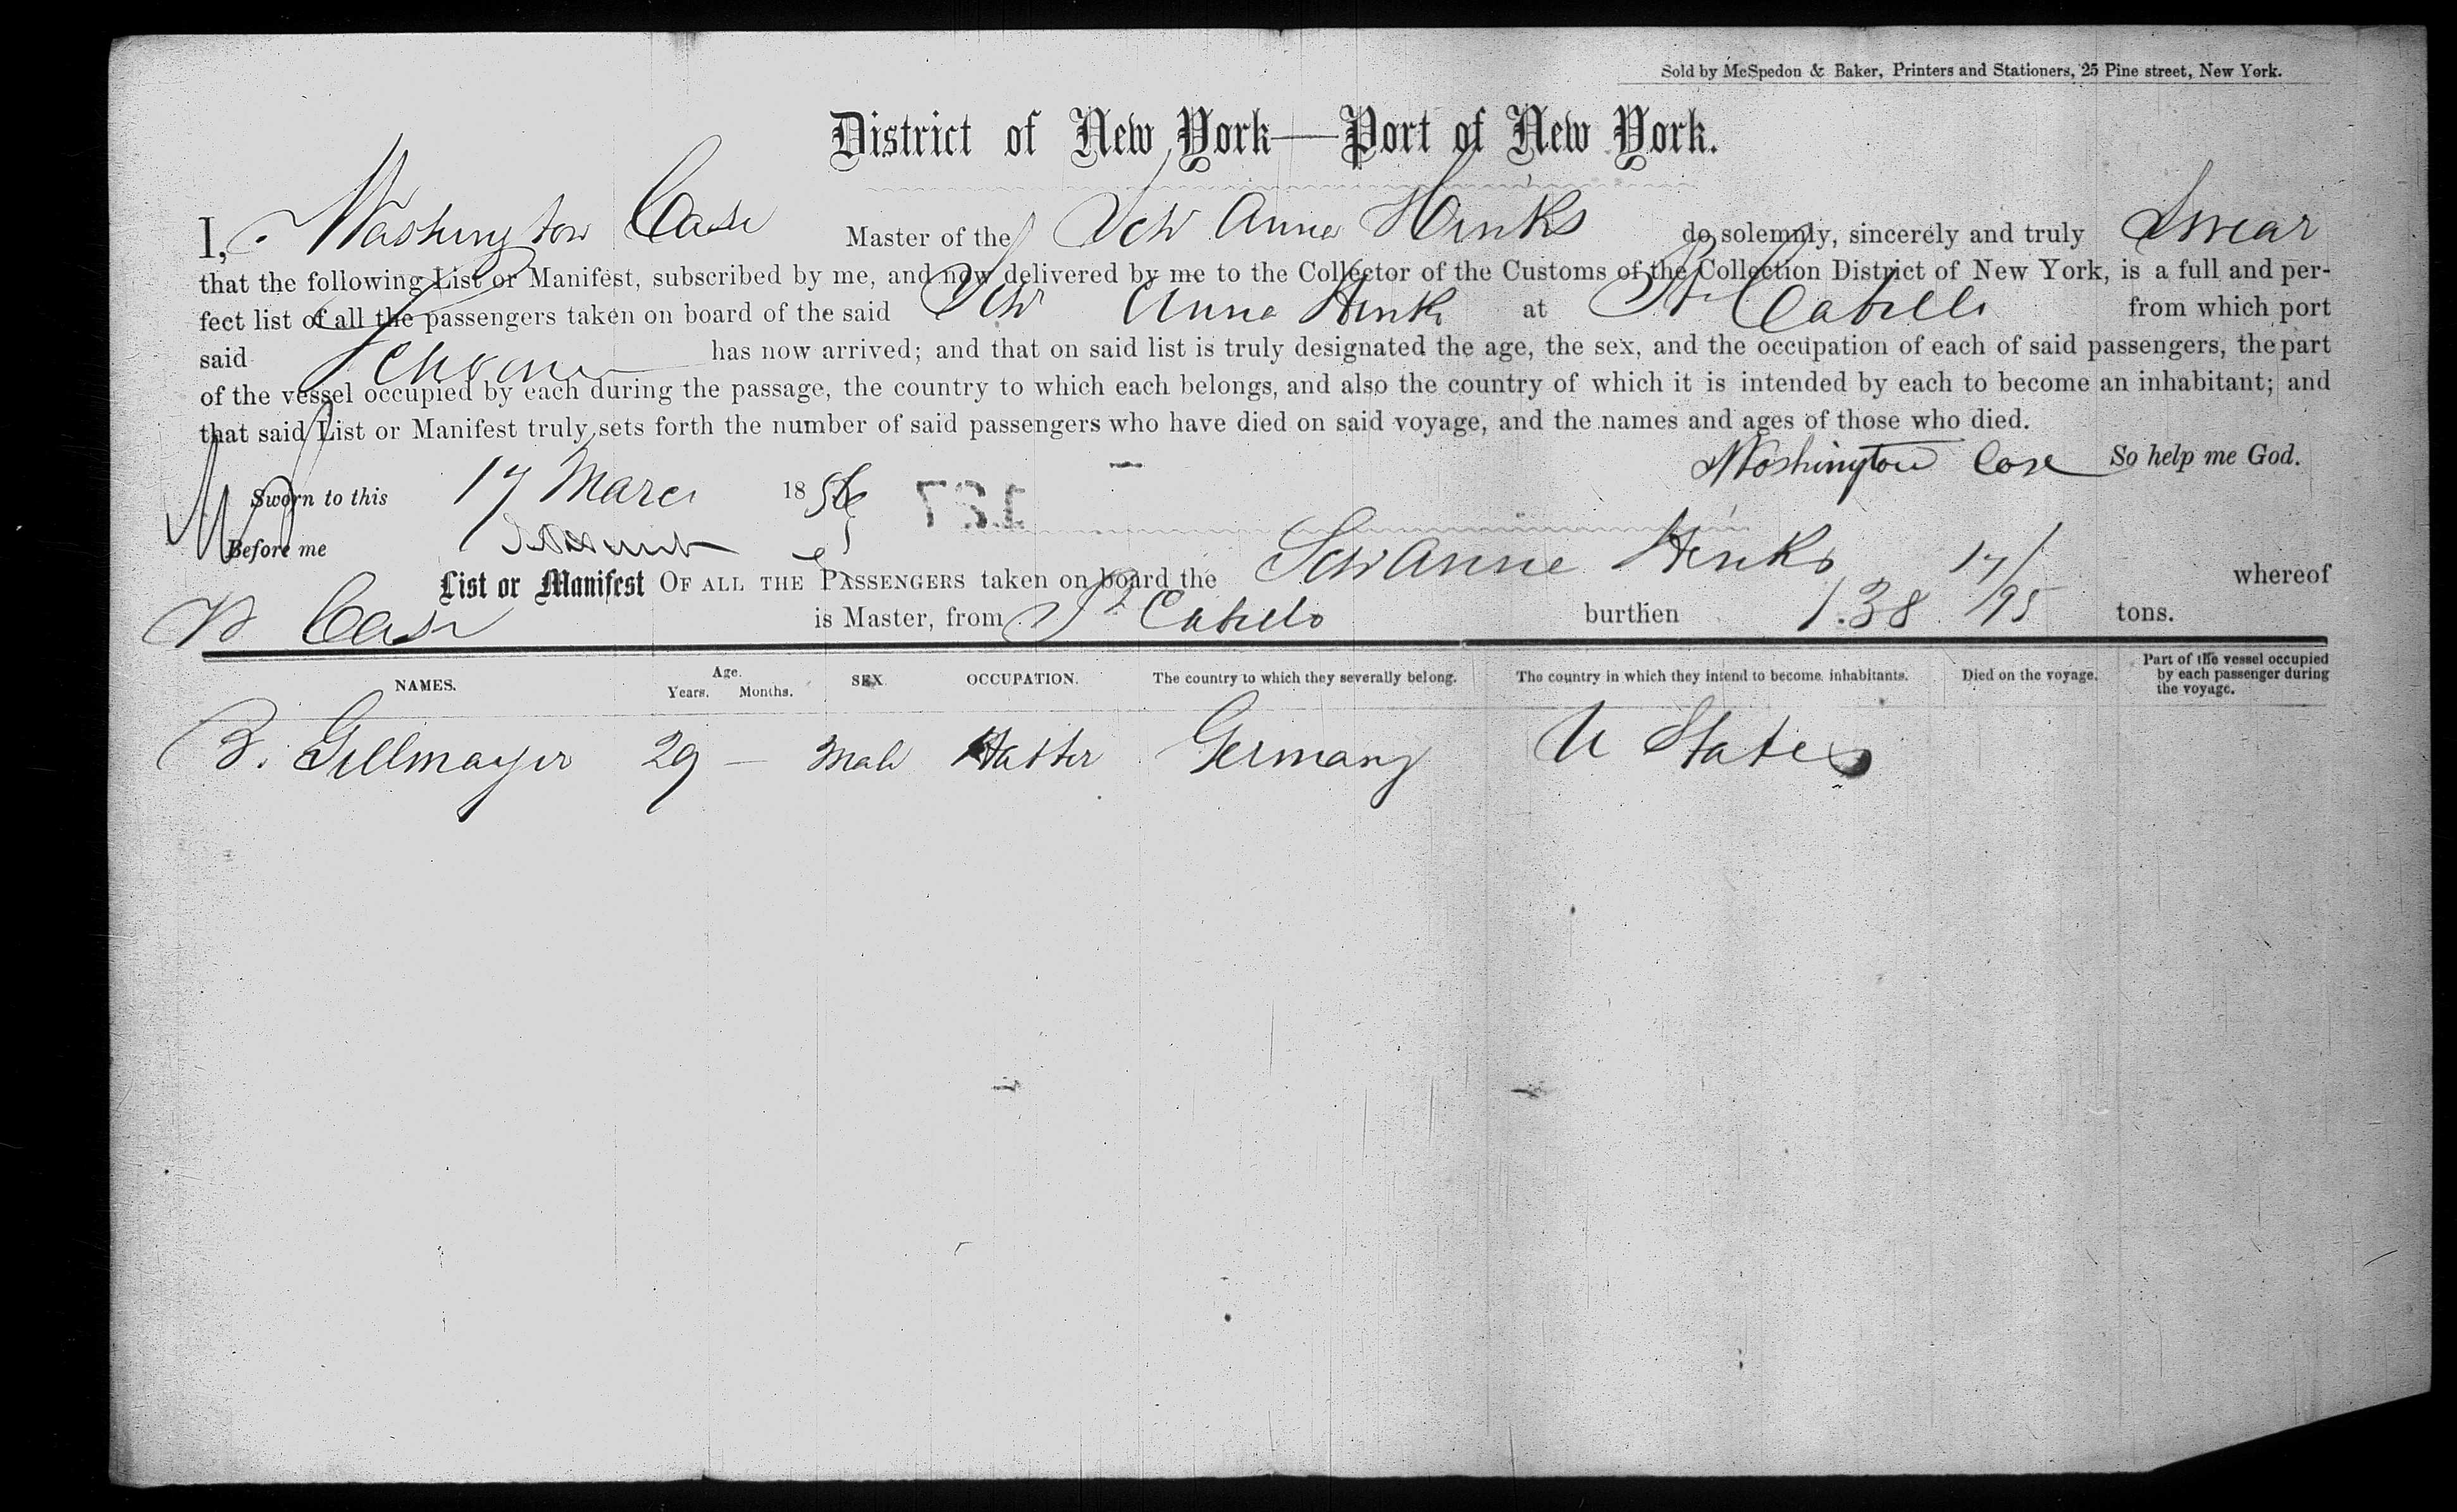 Sold by McSpedon & Baker, Printers and Stationers, 25 Pine street, New York.
District of New York—Port of New York.
I, Washington Case Master of the Schr Anna Hinks do solemnly, sincerely and truly Swear
that the following List or Manifest, subscribed by me, and now delivered by me to the Collector of the Customs of the Collection District of New York, is a full and per-
fect list of all the passengers taken on board of the said Schr Anna Hinks at Pto Cabello from which port
said Schooner has now arrived; and that on said list is truly designated the age, the sex, and the occupation of each of said passengers, the part
of the vessel occupied by each during the passage, the country to which each belongs, and also the country of which it is intended by each to become an inhabitant; and
that said List or Manifest truly sets forth the number of said passengers who have died on said voyage, and the names and ages of those who died.
Washington Case So help me God.
Sworn to this 17 March 1856
137
Before me
List or Manifest OF ALL THE PASSENGERS taken on board the Schr Anna Hinks whereof
W Case is Master, from Pto Cabello burthen 138 17/95 tons.
NAMES. Age. Years. Months. SEX. OCCUPATION. The country to which they severally belong. The country in which they intend to become inhabitants. Died on the voyage. Part of the vessel occupied by each passenger during the voyage.
B. Gellmayer 29 — Male Hatter Germany U States